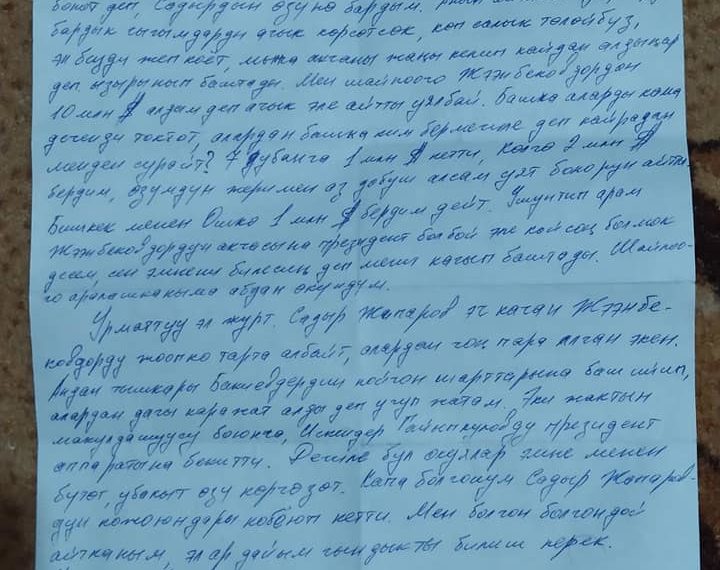 болот деп, Садырдын өзүнө бардым.
бардык чыгымдарды ачык көрсөтсөк, көп салык төлөйбүз,
эл бизди жеп коёт, мынча акчаны жаңы келип кайдан алдыңар
деп ызырынып баштады. Мен шайлоого Жээнбековдордон
10 млн $ алдым деп ачык эле айтты уялбай. Башка аларды кана
дегенди токтот, алардан башка ким бермек эле деп кайрадан
менден сурайт? 7 дубанга 1 млн $ кетти, Колго 2 млн $
бердим, өзүмдүн жеримен аз добуш алсам уят болорун айтты
Бишкек менен Ошко 1 млн $ бердим дейт. Ушунтип арам
Жээнбековдордун акчасына президент болбой эле койсоң болмок
десем сен эмнени билесиң деп мени кагып баштады. Шайлоо-
го аралашканыма абдан өкүндүм.
Урматтуу эл журт. Садыр Жапаров эч качан Жээнбе-
ковдорду жоопко тарта албайт, алардан чоң пара алган экен.
Андан тышкары Бакиевдердин койгон шарттарына баш ийип,
алардан дагы каражат алды деп угуп жатам. Эки жактын
макулдашуусу боюнча, президент
аппаратына бекитти. Деги эле бул окуялар эмне менен
бүтөт, убакыт өзү көргөзөт. Капа болгонум Садыр Жапаров-
дун кожоюндары көбөйүп кетти. Мен болгон болгондой
айтканым, эл ар дайым чындыкты билиш керек.